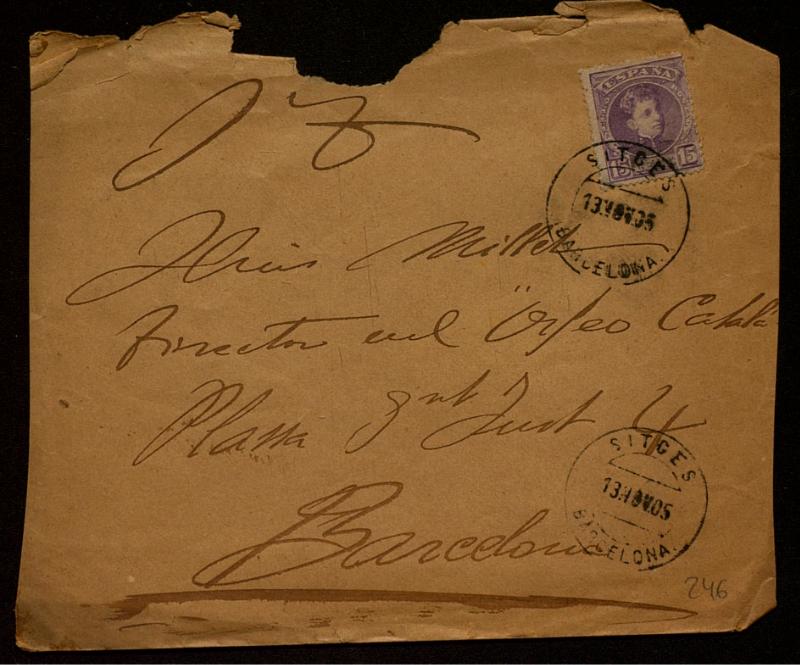 ESPAÑA
15 15
SITGES
13.NOV.05
BARCELONA.
Lluis Millet
Director del "Orfeo Català
Plassa Snt Just 4
Barcelona
SITGES
13.NOV.05
BARCELONA.
246